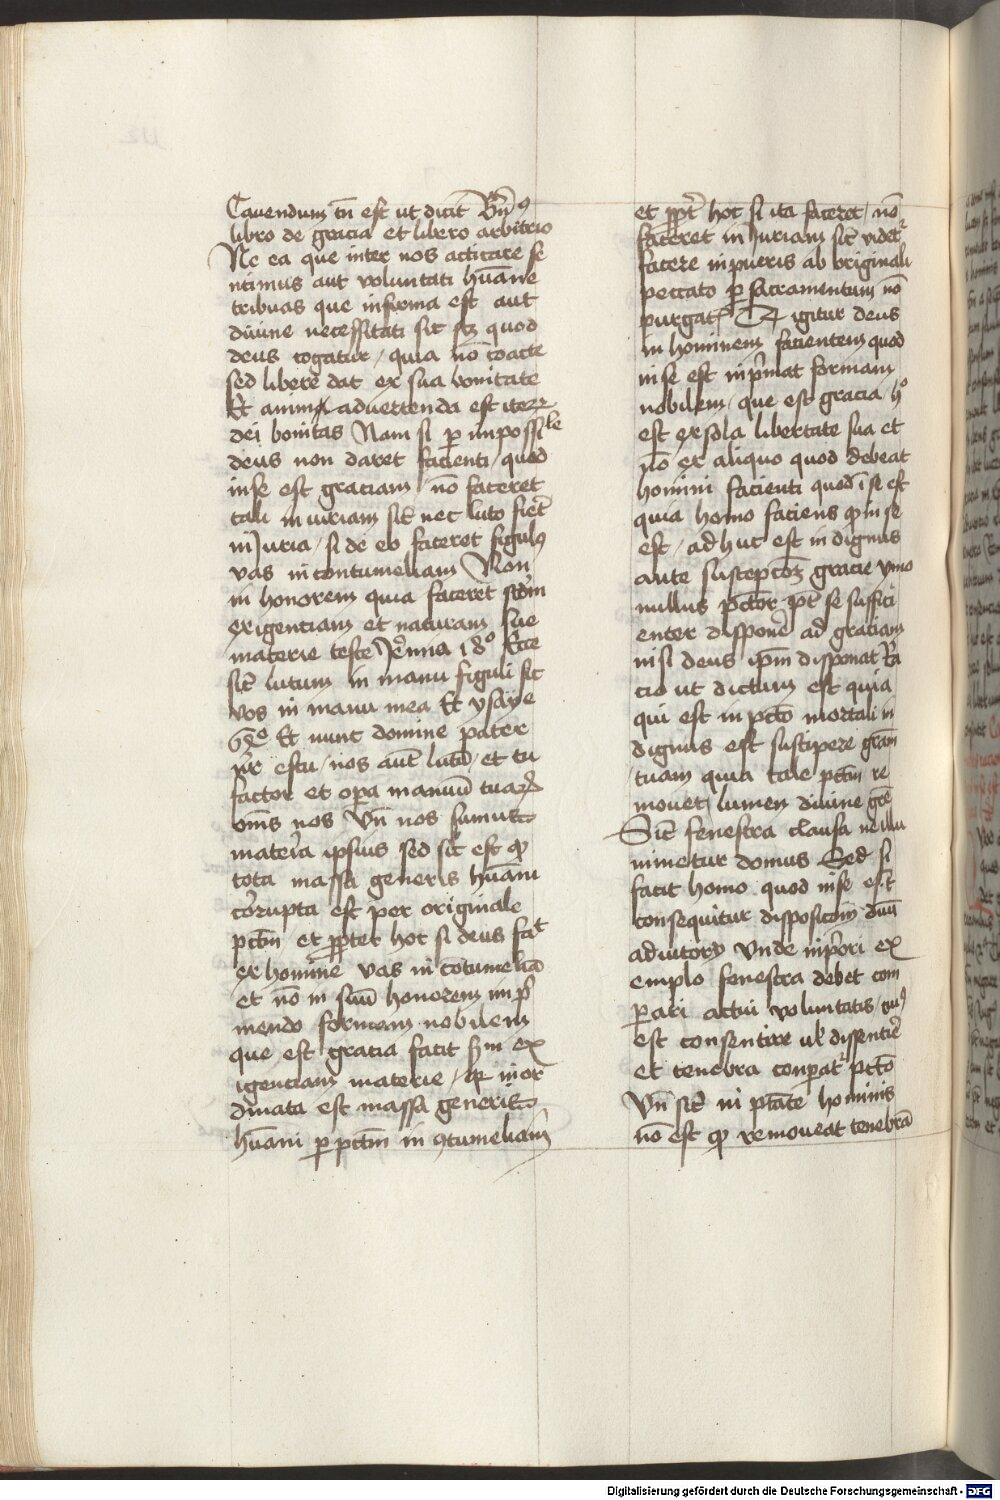 Cauendum tn̄ est ut dicit Bn̄
libro de gracia et libero arbitrio
Ne ea que inter nos actitare se
ntimus aut voluntati hūane
tribuas que infirma est aut
diuine necessitati sit scꝫ quod
deus cogatur / quia nō coacte
sed libere dat ex sua bonitate
Et anima aduertenda est
dei bonitas Nam si ꝑ impossile
deus non daret facienti / quod
in se est graciam / nō faceret
tali in iuriam sic̄ nec luto fiet̄
in Juria / si de eo faceret figulꝯ
vas in contumeliam Non
in honorem quia faceret scdm̄
exigenciam et naturam sue
materie teste Jerēmia 18º Ecce
sic̄ lutum in manu figuli sic
vos in manu mea Et ysaye
64º Et nunc domine pater
nr̄ es tu / nos aut̄ lutū / et tu
factor et oꝑa manuū tuaꝝ
om̄s nos Vn̄ nos sumus
mater̄ia ipsius sed sic̄ est ꝙ
tota massa generis hūani
corrupta est per originale
pctm̄ et ꝓpter hoc si deus fat
ex homine vas in cōtumeliā
et nō in suū honorem im pri
mendo formam nobilem
que est gracia facit scdm̄ ex
igenciam materie / qꝛ inor
dinata est massa generis
hūani ꝑ pctm̄ in ꝯtumeliam
et ꝓpt̄ hoc si ita faceret / nō
faceret in Juriam sic̄ videtꝛ
facere in pueris ab originali
peccato ꝑ sacramentum nō
purgatꝭ Qꝛ igitur deus
in hominem facientem quod
in se est inpri̅mat formam
nobilem / que est gracia / hº
est ex sola libertate sua et
nō ex aliquo quod debeat
homini facienti quod ī se est
quia homo faciens ꝙ in se
est / ad huc est in dignus
ante suscepcōꝫ gracie ymo
nullus pctor pt̄ se suffici
enter disponē ad graciam
nisi deus ipm̄ disponat Ra
cio ut dictum est quia
qui est in pctō mortali in
dignus est suscipere gram̄
tuam quia tale pctm̄ re
mouet lumen diuine grē
Sic̄ fenestra clausa ne illu
minetur domus Sed si
facit homo quod in se est
consequitur disposicōm diuī
adiutorꝯ Vnde in pri̅ori ex
emplo fenestra debet com
parari actui voluntatis / cuiꝯ
est consentire ul̄ dissentire
et tenebra conꝑatꝛ pctō
Vn̄ sic̄ in ptāte hominis
nō est ꝙ remoueat tenebrā
Digitalisierung gefördert durch die Deutsche Forschungsgemeinschaft - DFG